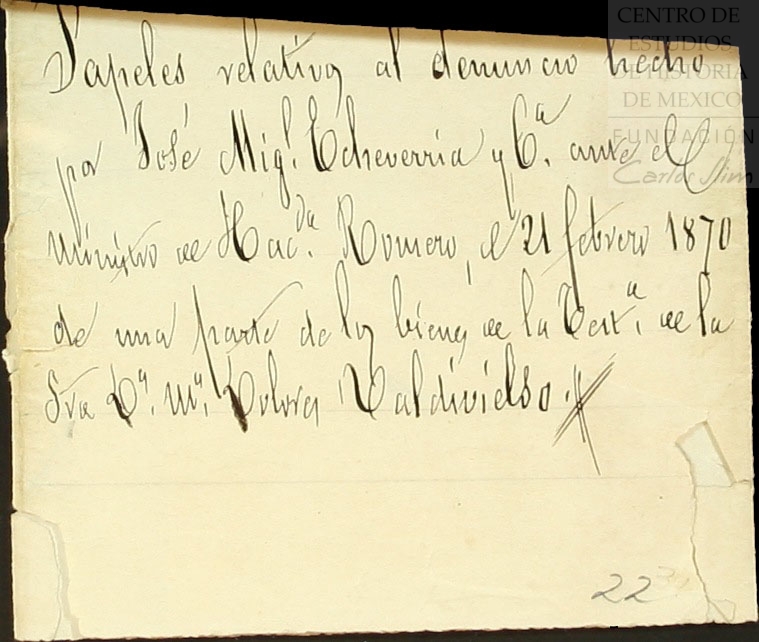 CENTRO DE
ESTUDIOS
DE HISTORIA
DE MEXICO
FUNDACIÓN
Carlos Slim
Papeles relativos al denuncio hecho
por José Migl. Echeverria y Ca. ante el
Ministro de Hacda. Romero, el 21 febrero 1870
de una parte de los bienes de la Testa. de la
Sra Da. Ma. Dolores Valdivielso.
22